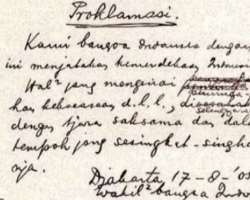 Proklamasi.
Kami bangsa Indonesia dengan
ini menjatakan kemerdekaan Indones
Hal² jang mengenai
kekoeasaan d.l.l., di
dengan tjara saksama dan dalam
tempoh jang sesingkat-singka
nja.
Djakarta 17 - 8 - '05
Wakil² bangsa Indo